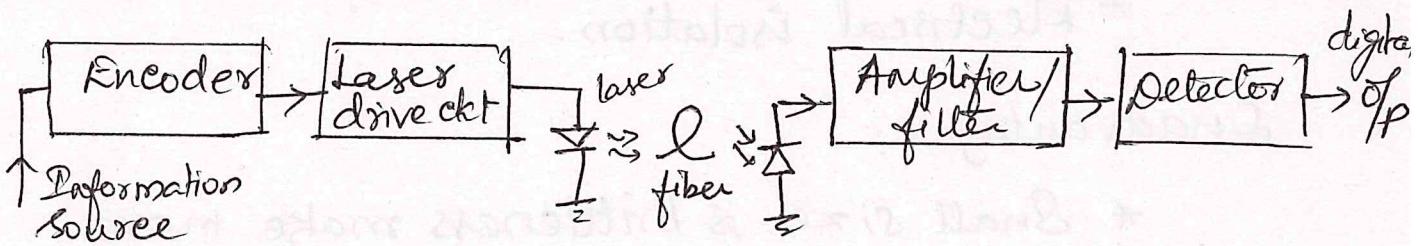 Encoder
Laser
drive ckt
laser
fiber
Amplifier/
filter
Detector
digital
O/P
Information
source